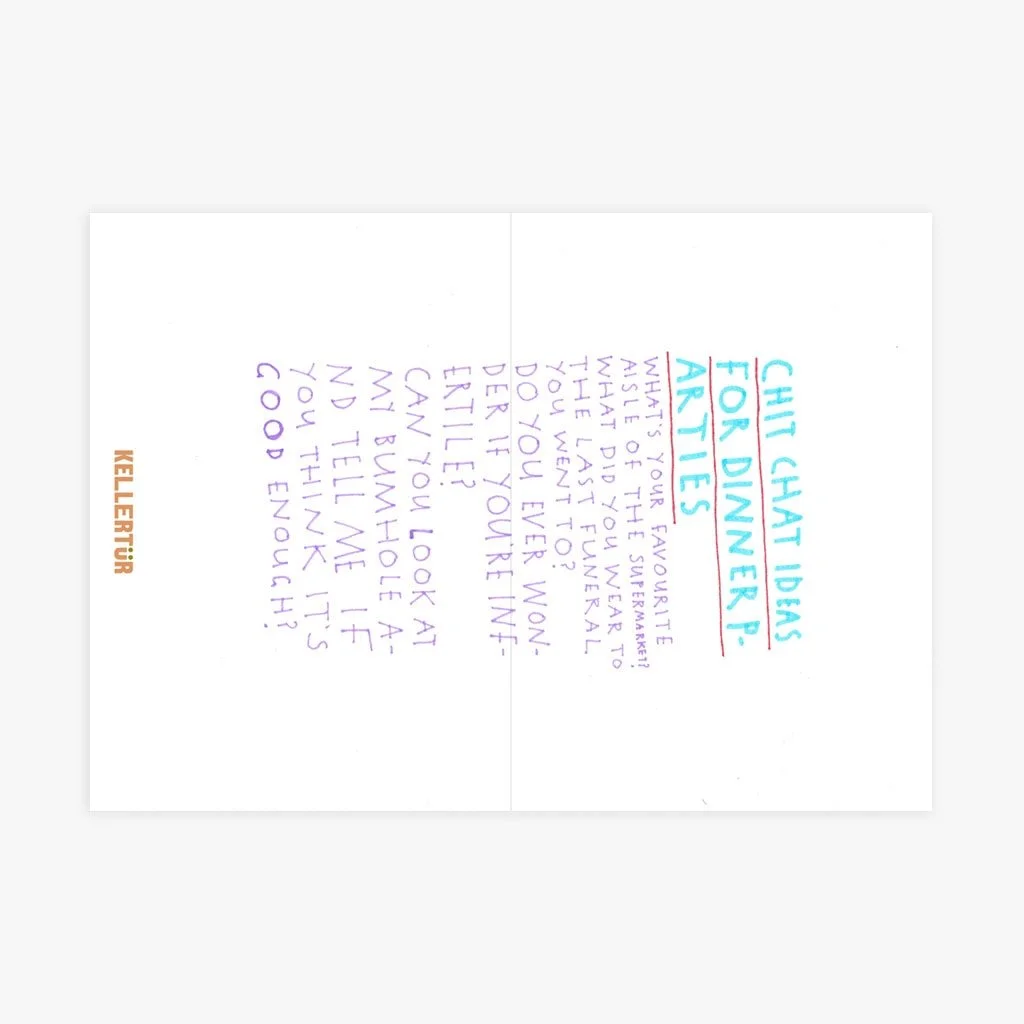 CHIT CHAT IDEAS
FOR DINNER P-
ARTIES
WHAT'S YOUR FAVOURITE
AISLE OF THE SUPERMARKET?
WHAT DID YOU WEAR TO
THE LAST FUNERAL
YOU WENT TO?
DO YOU EVER WON-
DER IF YOU'RE INF-
ERTILE?
CAN YOU LOOK AT
MY BUMHOLE A-
ND TELL ME IF
YOU THINK IT'S
GOOD ENOUGH?
KELLERTÜR